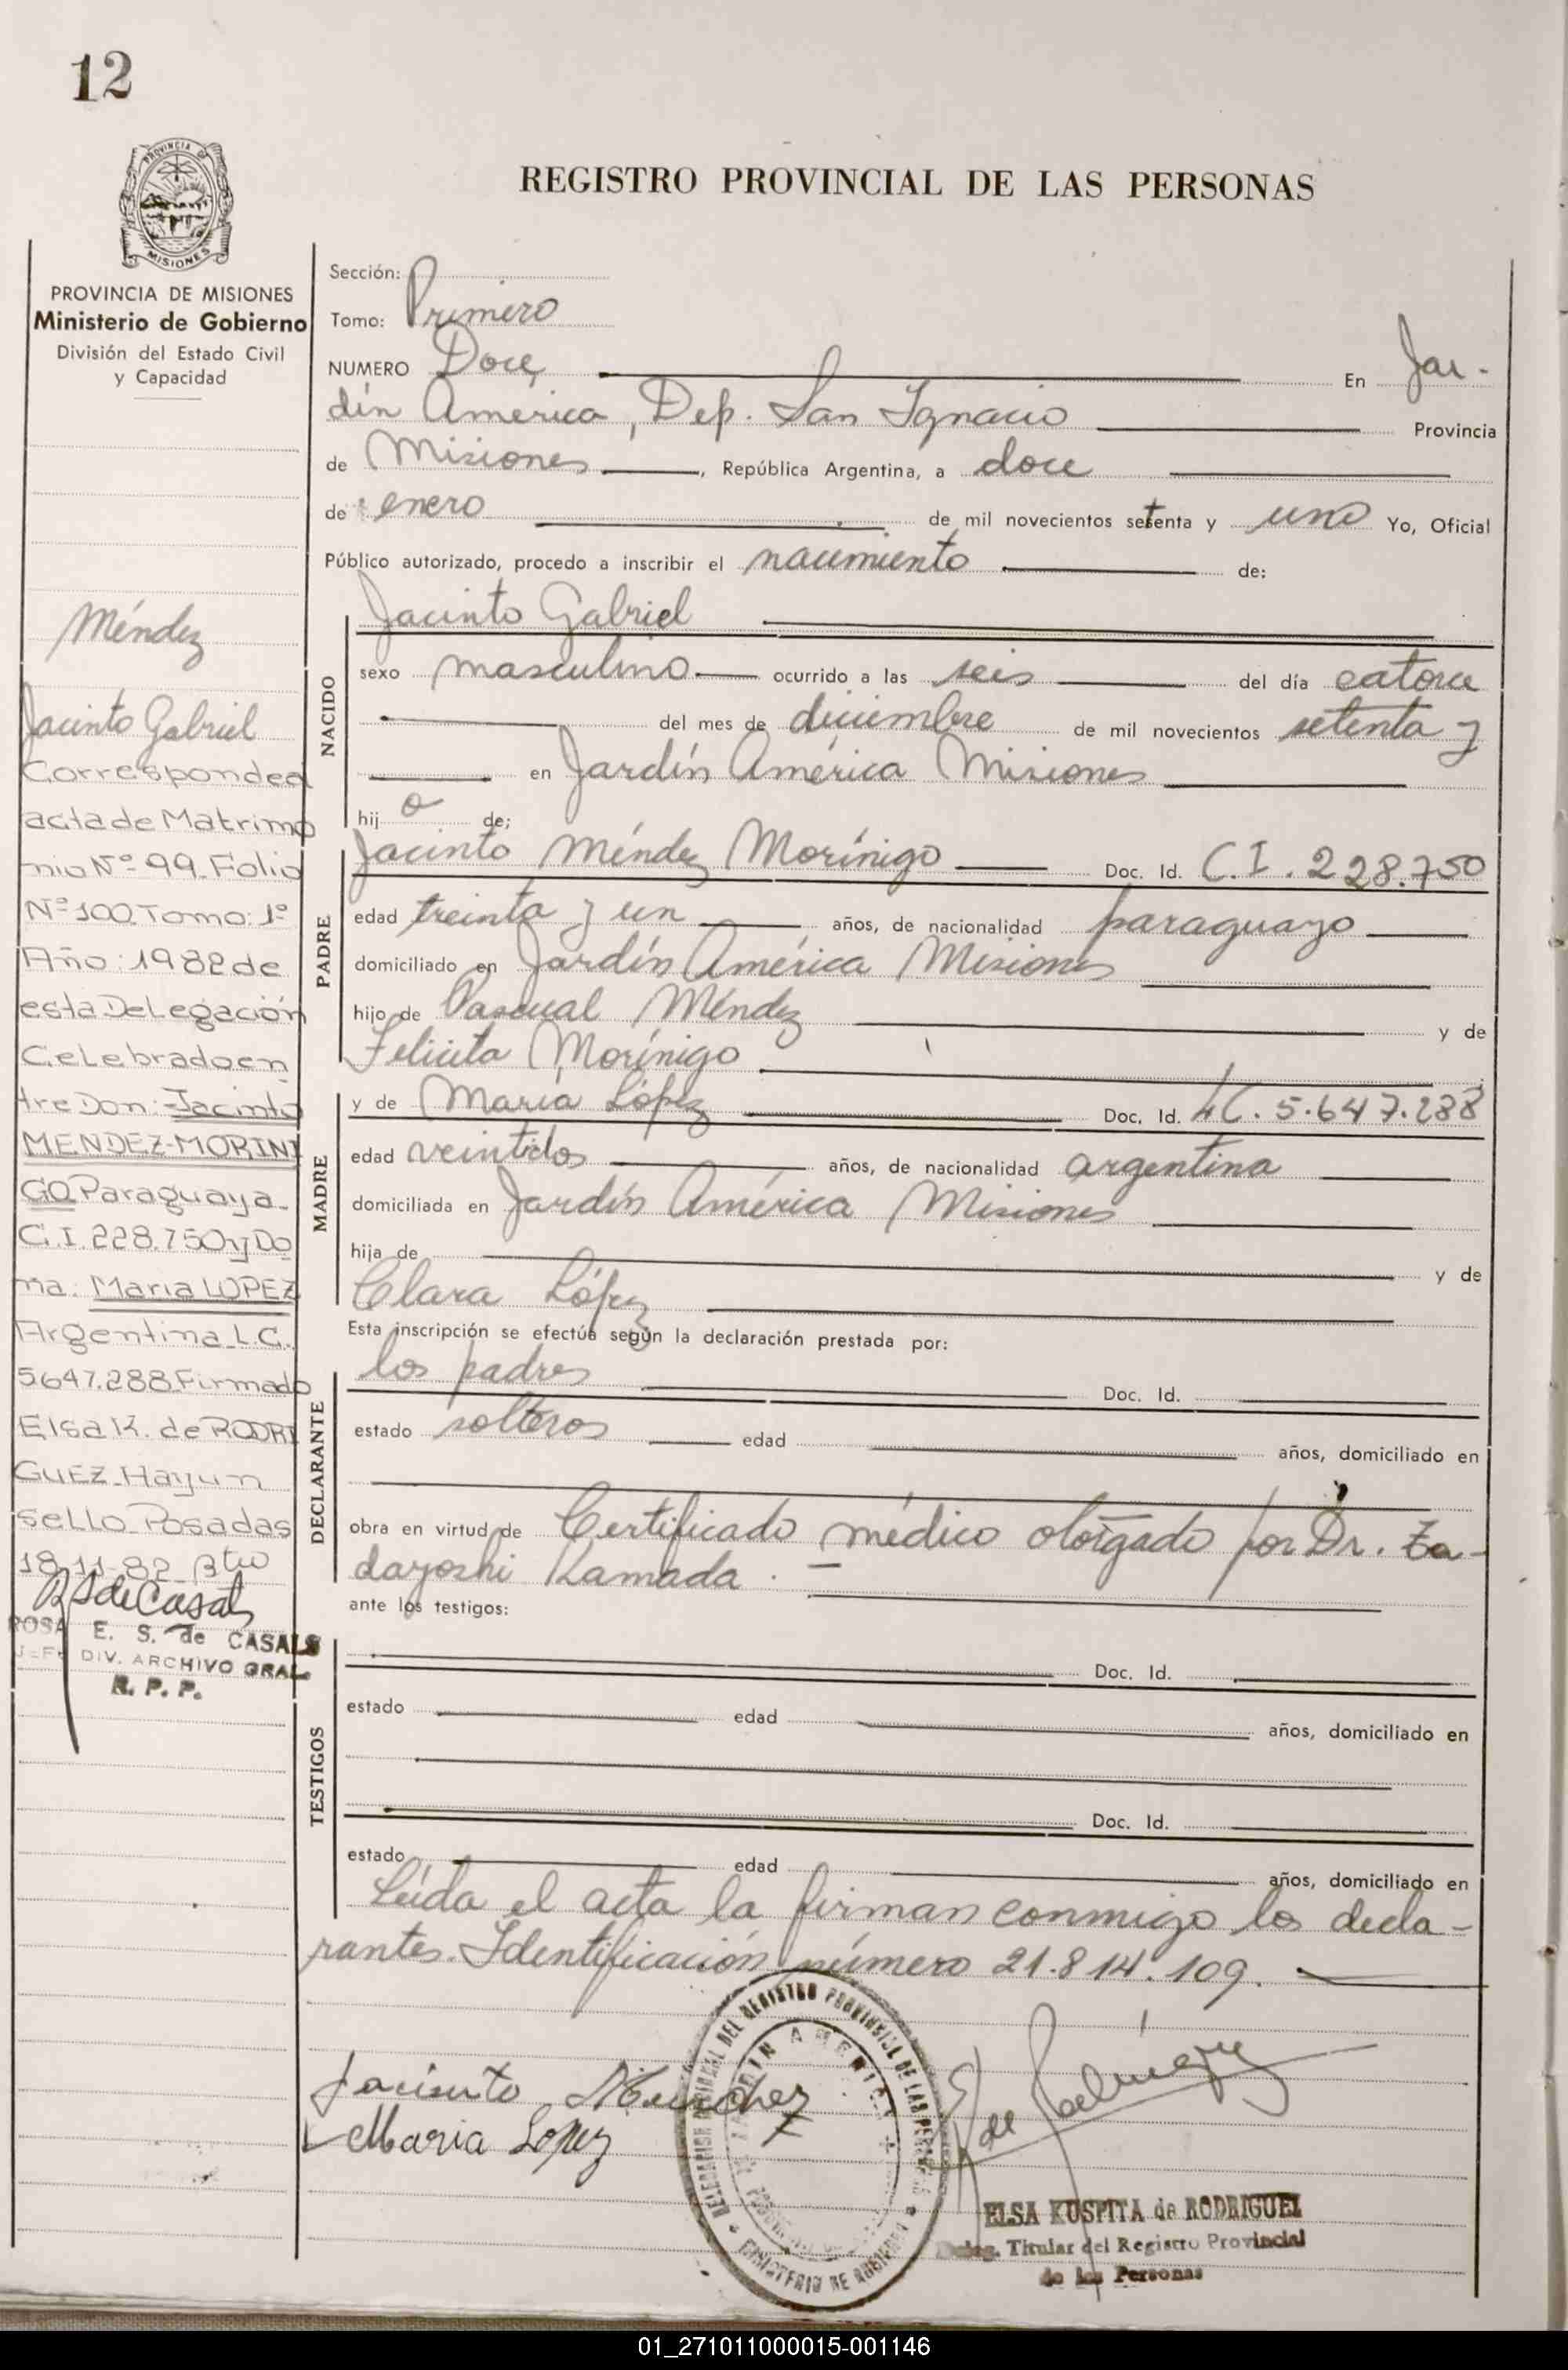 12
PROVINCIA DE
MISIONES
REGISTRO PROVINCIAL DE LAS PERSONAS
PROVINCIA DE MISIONES
Ministerio de Gobierno
División del Estado Civil
y Capacidad
Méndez
Jacinto Gabriel
Corresponde a
acta de Matrimo
nio Nº 99 Folio
Nº 100 Tomo: 1º
Año: 1982 de
esta Delegación
Celebrado en
tre Don: Jacinto
MENDEZ-MORINI
GO Paraguaya
C.I. 228.750 y Do
ña. Maria LOPEZ
Argentina L.C.
5647.288 Firmado
Elsa K. de RODRI
GUEZ Hay un
sello Posadas
18.11.82
ROSA E. S. de CASALS
JEFE DIV. ARCHIVO GRAL.
R. P. P.
Sección:
Tomo: Primero
NUMERO Doce En Jar-
dín América, Dep. San Ignacio Provincia
de Misiones, República Argentina, a doce
de enero de mil novecientos setenta y uno Yo, Oficial
Público autorizado, procedo a inscribir el nacimiento de:
NACIDO
Jacinto Gabriel
sexo masculino ocurrido a las seis del día catorce
del mes de diciembre de mil novecientos setenta y
en Jardín América Misiones
hij o de:
PADRE
Jacinto Méndez Morínigo Doc. Id. C.I. 228.750
edad treinta y un años, de nacionalidad paraguayo
domiciliado en Jardín América Misiones
hijo de Pascual Méndez y de
Felicita Morínigo
MADRE
y de María López Doc. Id. LC. 5.647.288
edad veintidos años, de nacionalidad argentina
domiciliada en Jardín América Misiones
hija de y de
Clara López
Esta inscripción se efectúa según la declaración prestada por:
DECLARANTE
los padres Doc. Id.
estado solteros edad años, domiciliado en
obra en virtud de Certificado médico otorgado por Dr. Ta-
dayoshi Kamada.
ante los testigos:
TESTIGOS
Doc. Id.
estado edad años, domiciliado en
Doc. Id.
estado edad años, domiciliado en
Leída el acta la firman conmigo los decla-
rantes. Identificación número 21.814.109.
Jacinto Mendez
Maria Lopez
DELEGACION REGIONAL DEL REGISTRO PROVINCIAL DE LAS PERSONAS
MINISTERIO DE GOBIERNO
ELSA KUSPITA de RODRIGUEZ
Deleg. Titular del Registro Provincial
de las Personas
01_271011000015-001146